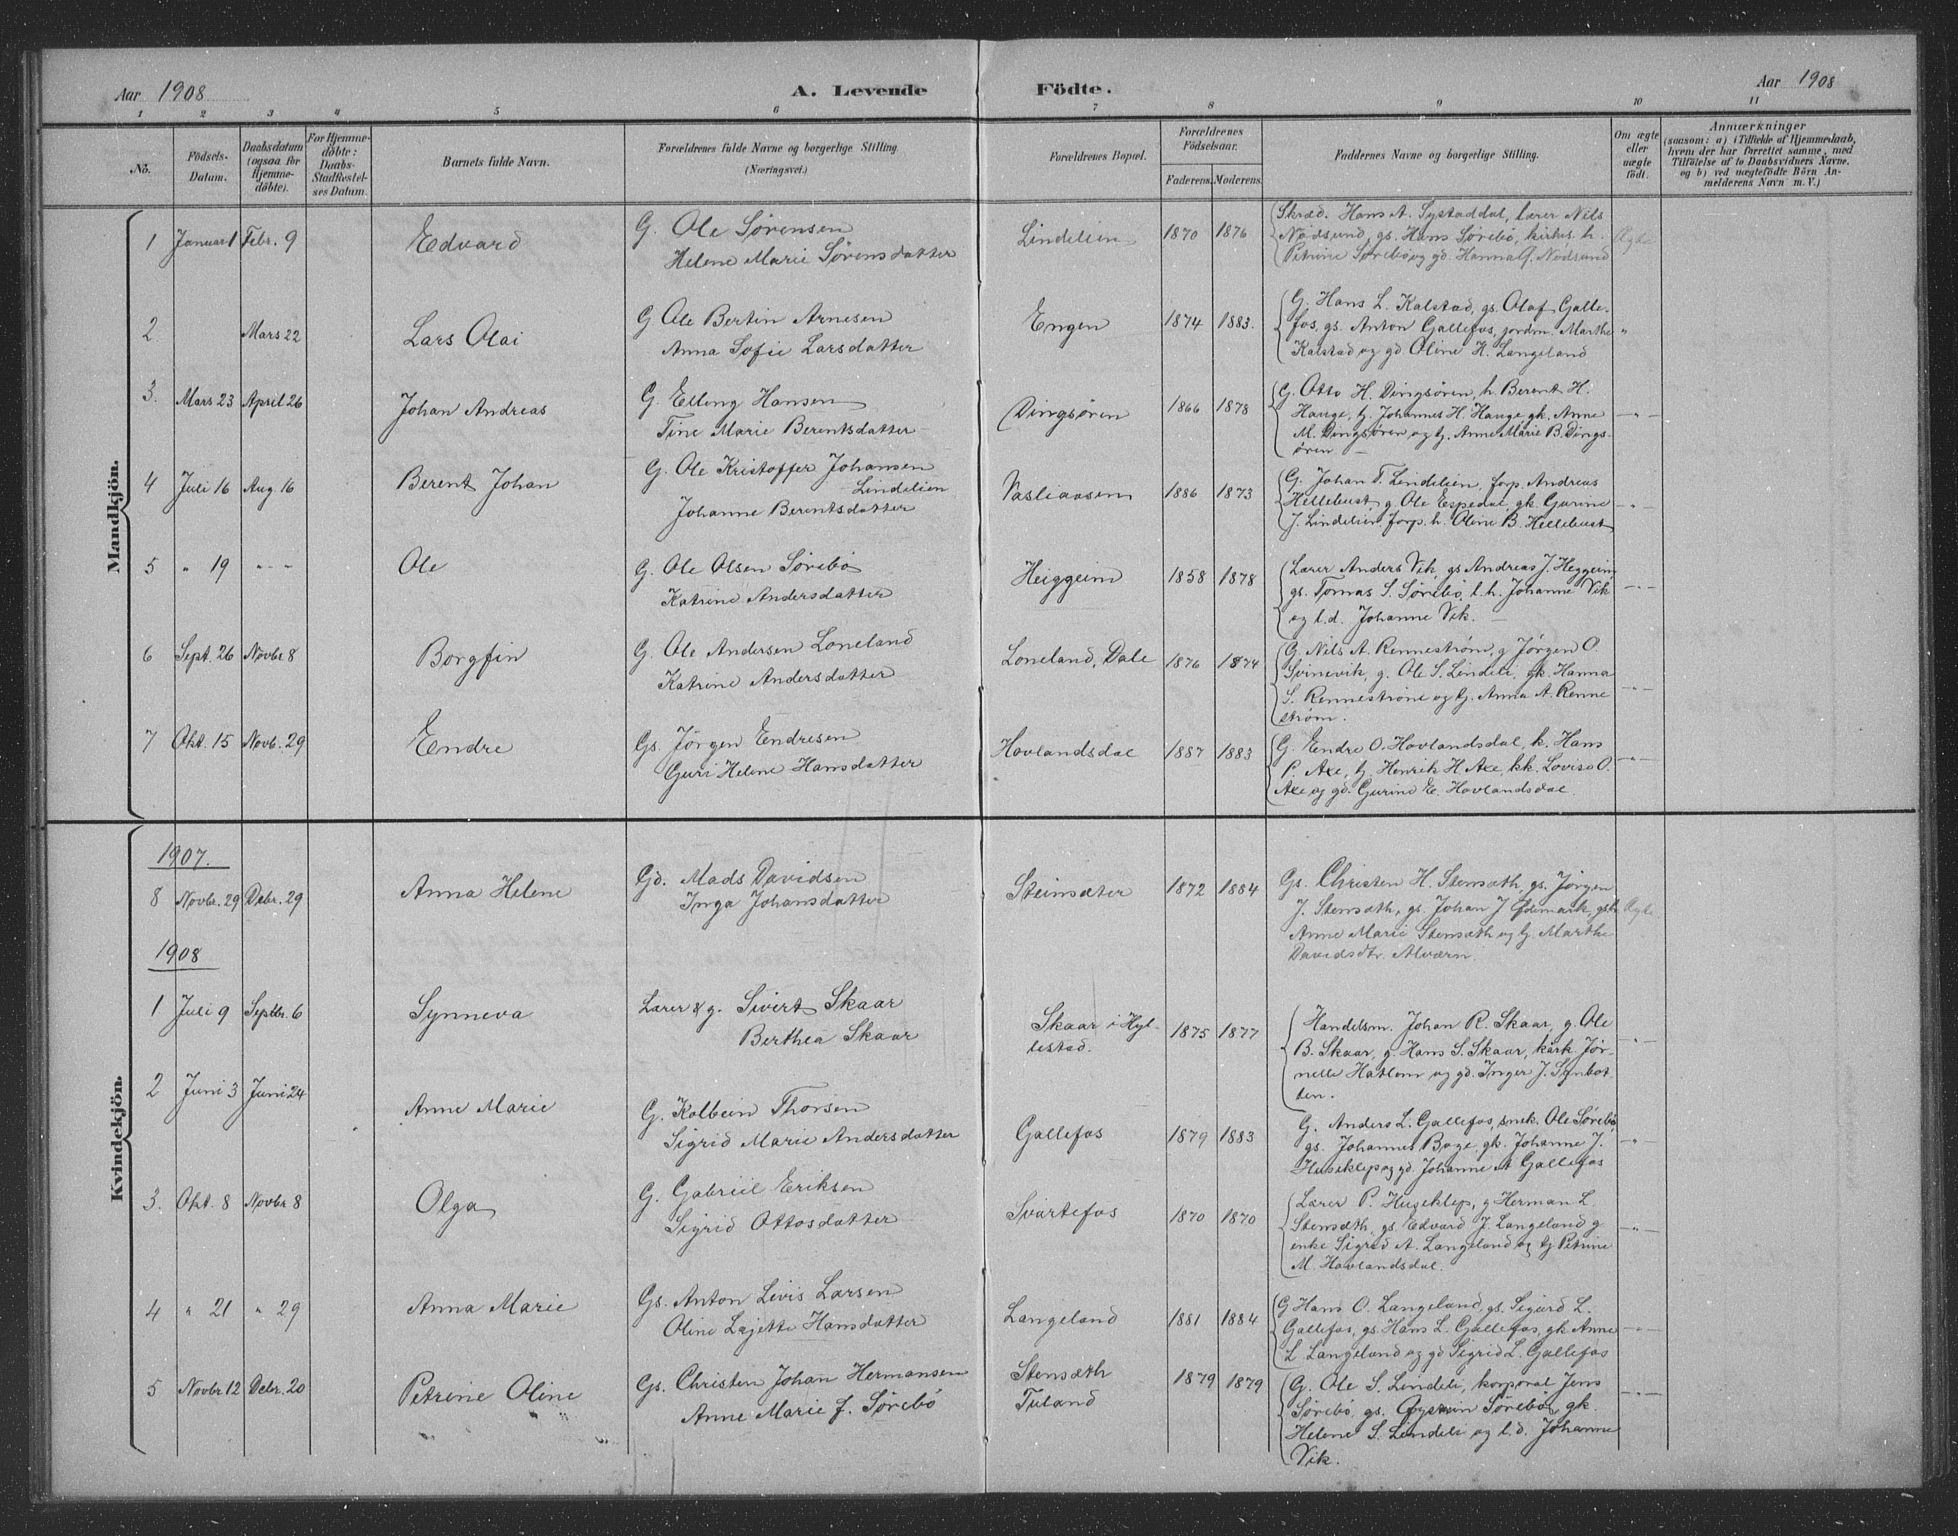 Aar 1908
A. Levende Födte.
Aar 1908
1 2 3 4 5 6 7 8 9 10 11
No.
Födsels-Datum.
Daabsdatum (ogsaa for Hjemmedöbte).
For Hjemmedöbte: Daabs-Stadfæstelses Datum.
Barnets fulde Navn.
Forældrenes fulde Navne og borgerlige Stilling.
(Næringsvei.)
Forældrenes Bopæl.
Forældrenes Födselsaar.
Faderens. Moderens.
Faddernes Navne og borgerlige Stilling.
Om ægte eller uægte födt.
Anmærkninger
(saasom: a) i Tilfælde af Hjemmedaab,
hvem der har forrettet samme, med
Tilföielse af to Daabsvidners Navne.
og b) ved uægtefödte Börn Anmelderens Navn m. V.)
Mandkjön.
1 Januar 1 Febr. 9 Edvard G. Ole Sørensen
Helene Marie Sørensdatter
Lindelien 1870 1876
Skræd. Hans A. Systaddal, lærer Nils
Nødsund, gs. Hans Sørebø, kirkes. h.
Petrine Sørebø og gd. Hanna G. Nødsund
Ægte
2 Mars 22 Lars Olai G Ole Bertin Arnesen
Anna Sofie Larsdatter
Engen 1874 1883.
G. Hans L. Kalstad, gs. Olaf Galle-
fos, gs. Anton Gallefos, jordm. Marthe
Kalstad og gd Oline H. Langeland
"
3. Mars 23 April 26 Johan Andreas G. Elling Hansen
Tine Marie Berentsdatter
Dingsøren 1866 1878
G. Otto H. Dingsören, h. Berent H.
Hauge, G. Johannes H. Hauge gk. Anne
M. Dingsøren og G. Anne Marie B. Dings-
ören
- " -
4 Juli 16 Aug. 16 Berent Johan G. Ole Kristoffer Johansen
Lindelien
Johanne Berentsdatter
Vasliaasen 1886 1873
G. Johan T. Lindelien, forp. Andreas
Hellebust, g. Ole Espedal, gk. Gurine
J. Lindelien, forp. h. Oline B. Hellebust
- " -
5 " 19 - " - Ole G. Ole Olsen Sørebø
Katrine Andersdatter
Heiggeim 1858 1878
Lærer Anders Vik, gs Andreas J. Heggeim
gs. Tomas S. Sørebø, l. h. Johanne Vik
og l. d. Johanne Vik.
- " -
6 Sept. 26 Novbr 8 Borgfin G. Ole Andersen Loneland
Katrine Andersdatter
Loneland, Dale 1876 1874
G. Nils A. Rennestrøm, g Jørgen O.
Svinevik, g. Ole S. Lindeli, gk. Hanna
S. Rennestrøm og G. Anna A. Renne
strøm.
- " -
7 Okt. 15 Novb. 29 Endre Gs. Jørgen Endresen
Guri Helene Hansdatter
Hovlandsdal 1887 1883
G. Endre O. Hovlandsdal, k. Hans
P. Axe, G. Henrik H. Axe, kk. Lovise O.
Axe og gd. Gurine E. Hovlandsdal.
- " -
Kvindekjön.
1907.
8 Novbr. 29 Debr. 29 Anna Helene Gd. Mads Davidsen
Inga Johansdatter
Steinsæter 1872 1884
Gs. Christen H. Stensæth, gs. Jørgen
J. Stensæth, gs. Johan J. gsk.
Anne Marie Stensæth og G. Marthe
Davidsdtr. Alværn.
Ægte
1908
1 Juli 9 Septbr. 6 Synneva Lærer & g. Sivert Skaar
Berthea Skaar
Skaar i Hyl-
lestad.
1875 1877
Handelsm. Johan R. Skaar, g. Ole
B. Skaar, g. Hans S. Skaar, kårk. Jør-
nelle Hatlem og gd. Inger J. Synbot
ten.
- " -
2 Juni 3 Juni 24 Anne Marie G. Kolbein Thorsen
Sigrid Marie Andersdatter
Gallefos 1879 1883
G. Anders L. Gallefos, smk. Ole Sørebø
gs. Johannes Boge, gk. Johanne J.
Huseklep og gd. Johanne A Gallefos
- " -
3. Okt. 8 Novbr 8 Olga G. Gabriel Eriksen
Sigrid Ottosdatter
Svartefos 1870 1870
Lærer P. Huseklep, g Herman L
Stensæth, gs. Edvard J. Langeland g
enke Sigrid A. Langeland og G Petrine
M. Hovlandsdal.
- " -
4 " 21 " 29 Anna Marie Gs. Anton Livis Larsen
Oline Lajette Hansdatter
Langeland 1881 1884
G Hans O. Langeland, gs. Sigurd L.
Gallefos, gs. Hans L. Gallefos, gk Anne
L. Langeland og gd Sigrid L. Gallefos
- " -
5 Novbr 12 Debr. 20 Petrine Oline Gs. Christen Johan Hermansen
Anne Marie f. Sørebø
Stensæth
Tuland
1879 1879
G. Ole S. Lindeli, korporal Jens
Sørebø, gs. Øystein Sørebø, gk.
Helene S. Lindeli og l. d. Johanne
Vik.
- " -